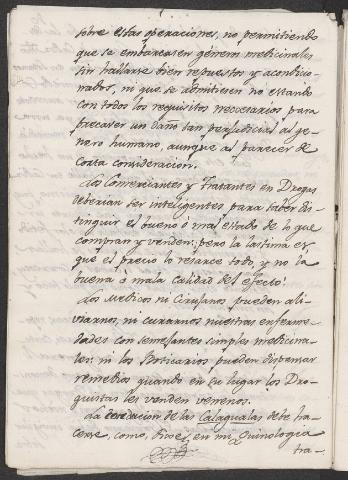 sobre estas operaciones, no permitiendo
que se embarcasen géneros medicinales
sin hallarse bien repuestos y acondicio-
nados, ni que se admitiesen no estando
con todos los requisitos necesarios para
precaver un daño tan perjudicial al ge-
nero humano, aunque al parecer de
corta consideracion.
Los Comerciantes y Tratantes en Drogas
deberian ser inteligentes para saber dis-
tinguir el bueno ó mal estado de lo que
compran y venden: pero la lastima es
que el precio lo resarce todo, y no la
buena ó mala calidad del efecto.
Los Medicos ni Cirujanos pueden ali-
viarnos, ni curarnos nuestras enferme-
dades con semejantes simples medicina-
les: ni los Boticarios pueden dispensar
remedios quando en su lugar los Dro-
guistas les venden venenos.
La desecacion de las Calagualas debe ha-
cerse, como, dixe, en mi Quinologia
tra-